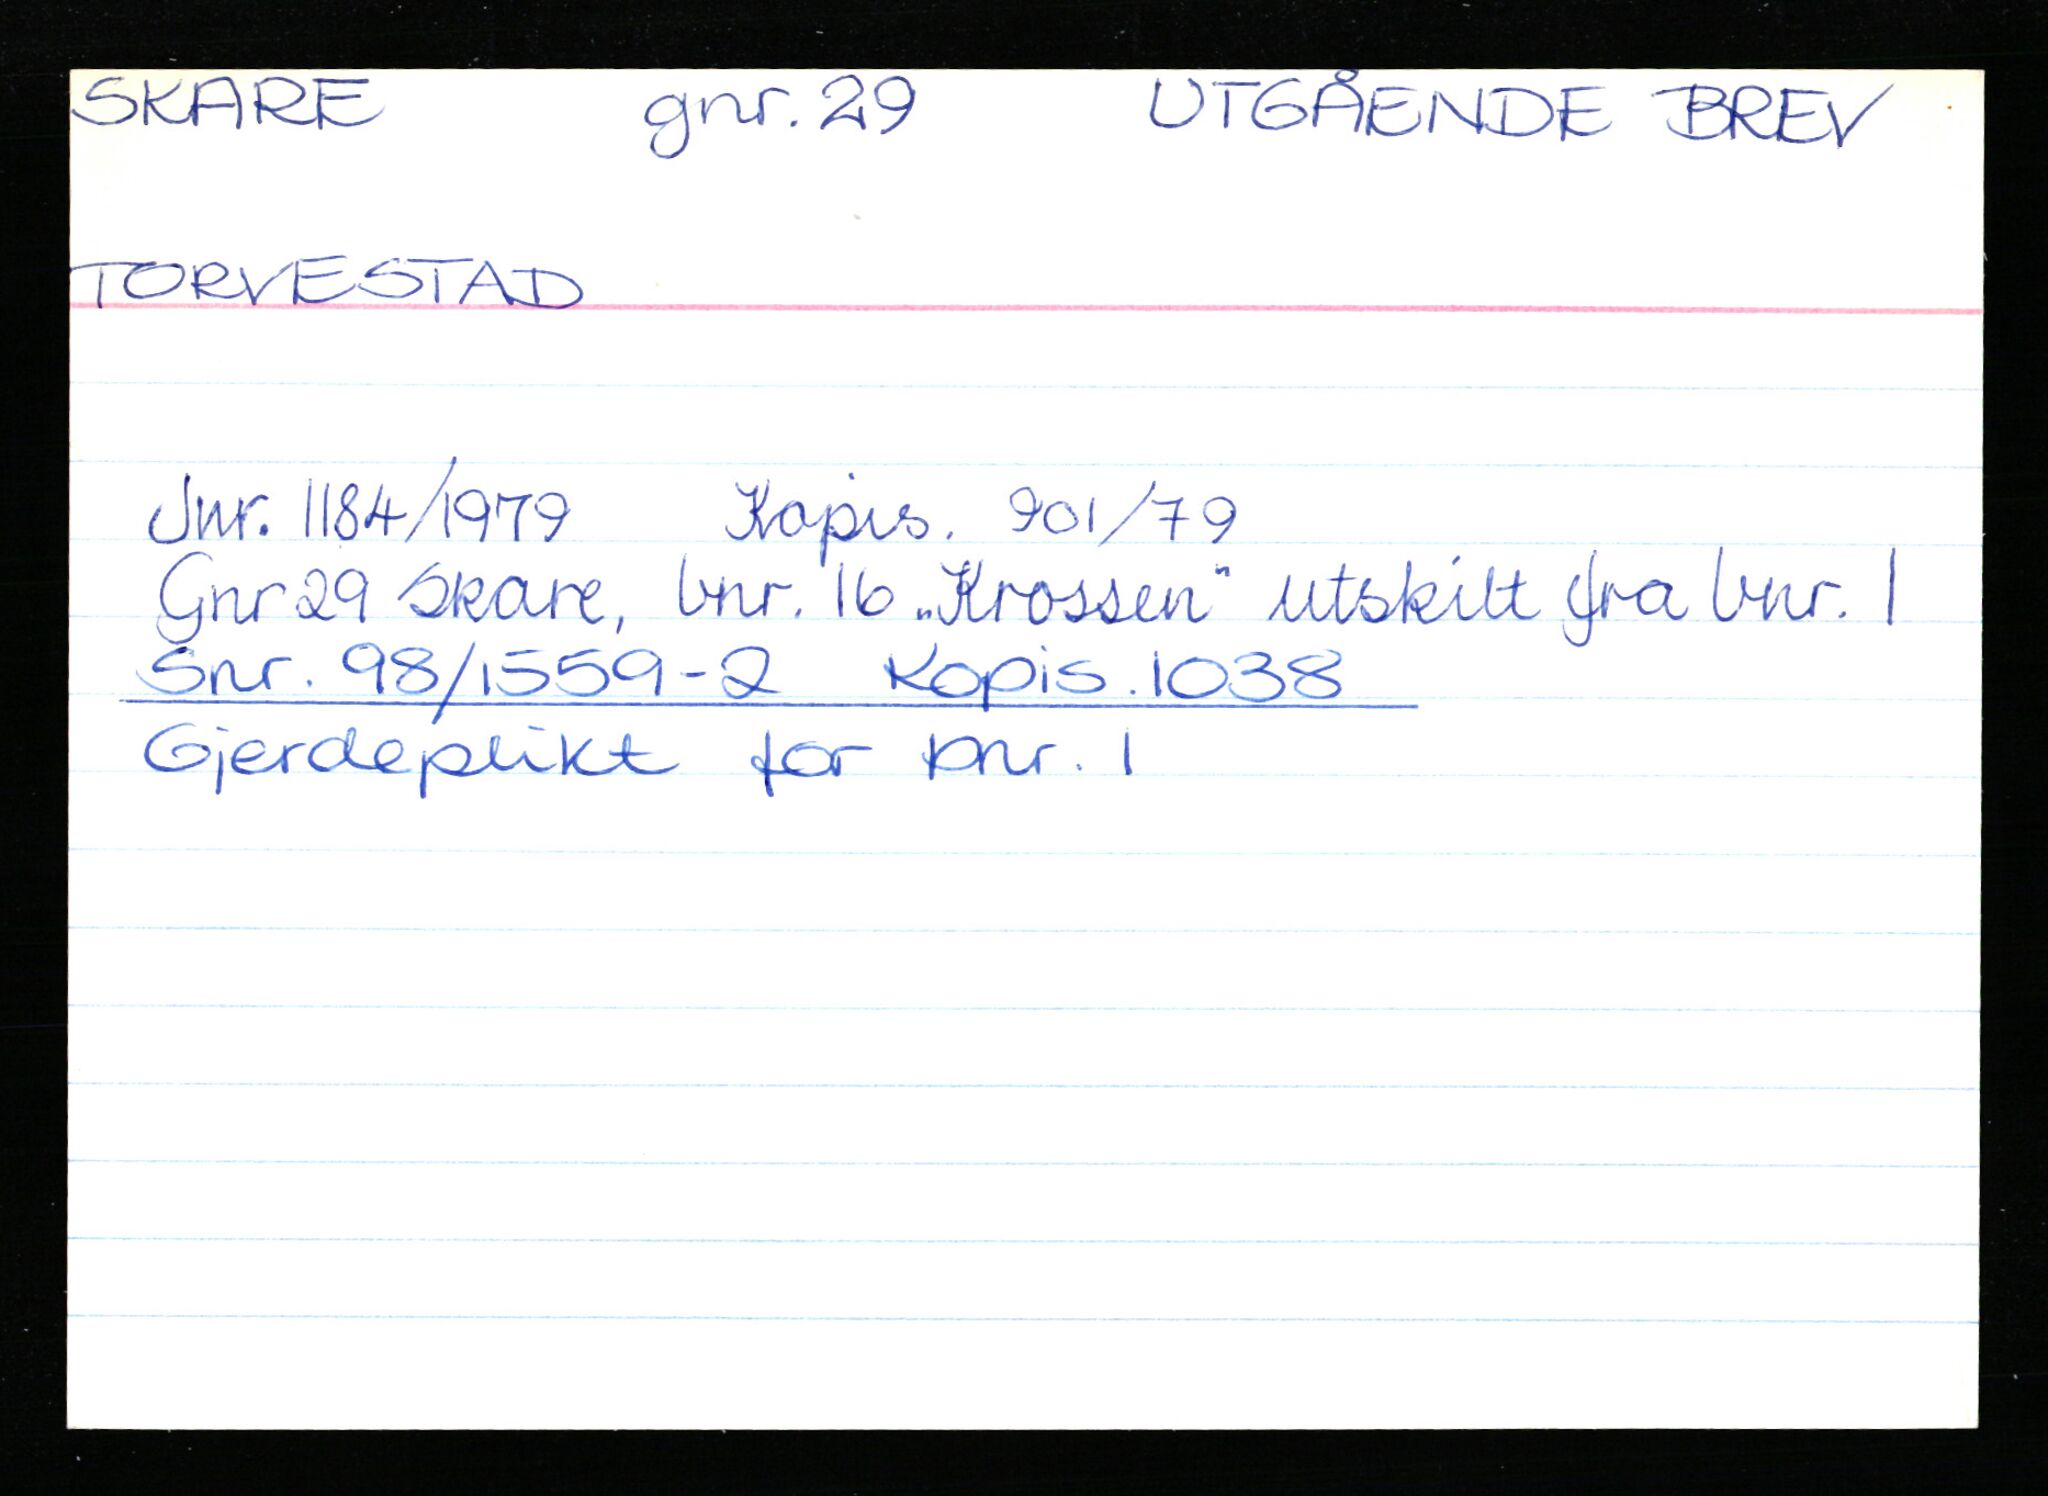 SKARE gnr. 29 UTGÅENDE BREV
TORVESTAD
Jnr. 1184/1979 Kopis. 901/79
Gnr 29 Skare, bnr. 16 „Krossen" utskilt fra bnr. 1
Snr. 98/1559-2 Kopis. 1038
Gjerdeplikt for bnr. 1